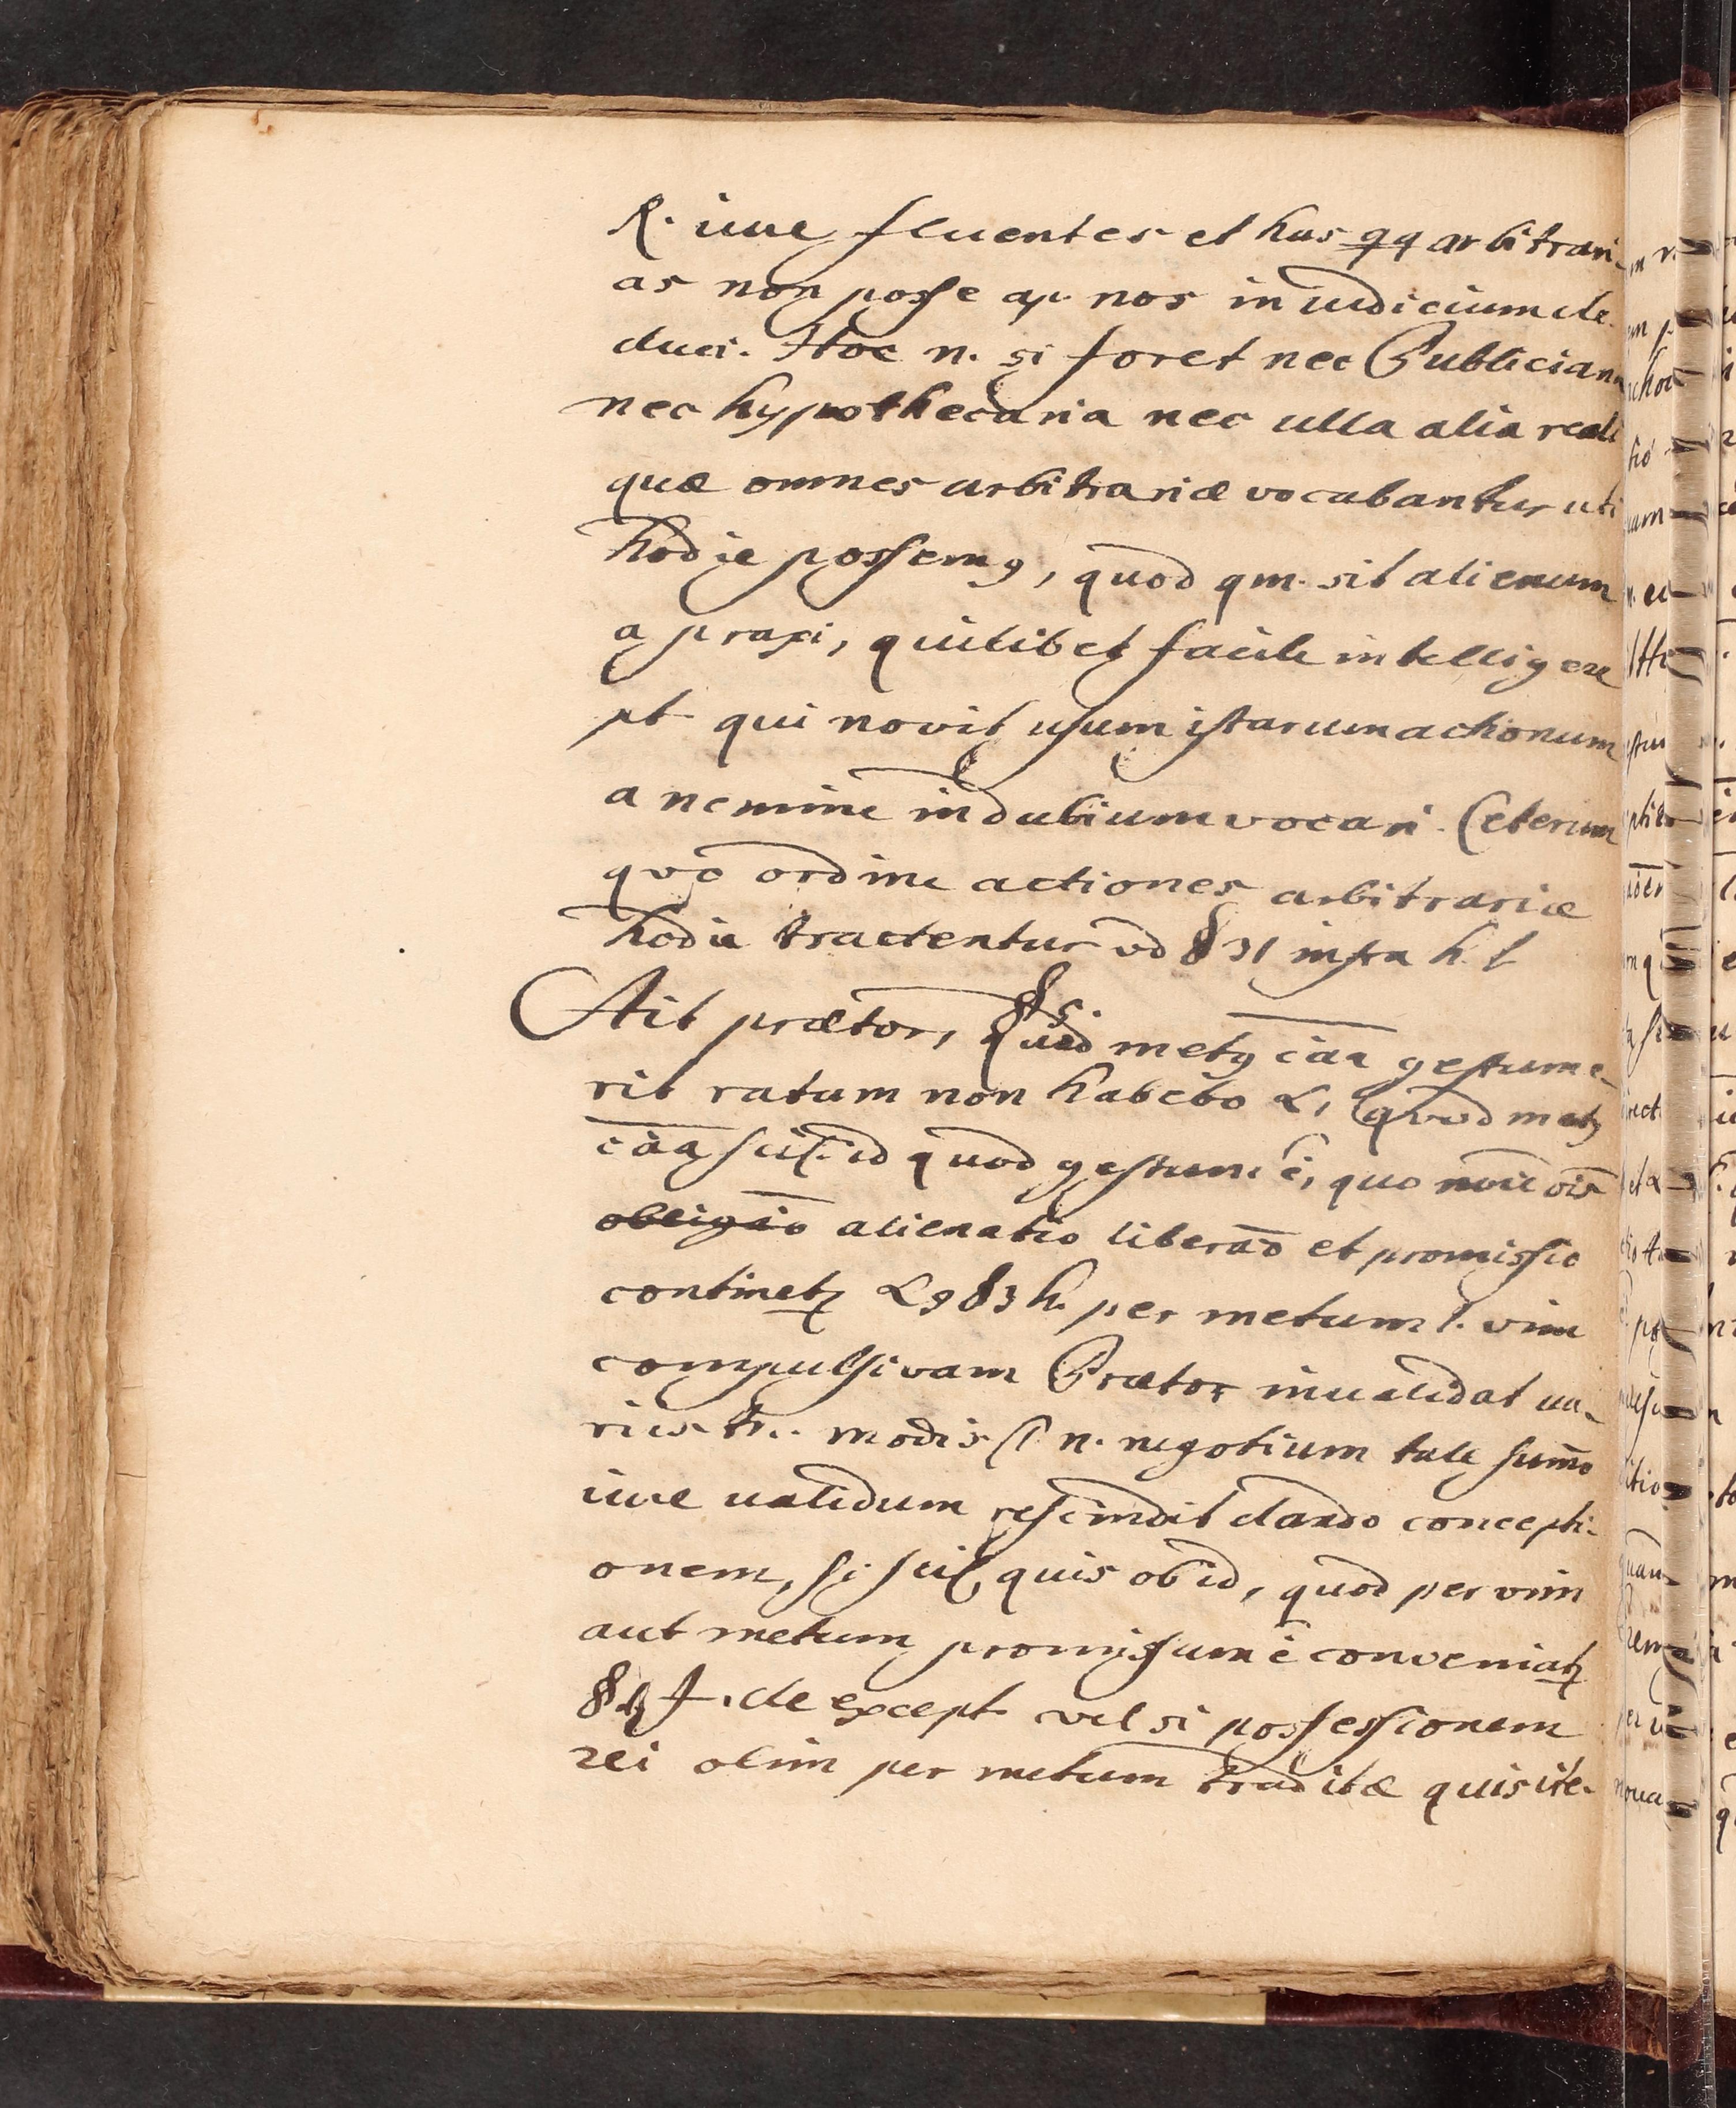 R. iure fluentes et has qq arbitrari-
as non posse ap. nos in iudicium de-
duci. Hoc n. si foret nec Publiciana
nec hypothecaria nec ulla alia reali
quæ omnes arbitrariæ vocabantur uti
hodie possemꝯ, quod qm. sit alienum
a praxi, quilibet facile intelligere
pt qui novit usum istarum actionum
a nemine in dubium vocari. Ceterum
quo ordine actiones arbitrariæ
hodie tractentur vd § 31 infra h. t
§ 5.
Ait prætor, Quod metꝯ cãa gestum e-
rit ratum non habebo L 1 quod metꝯ
cãa scil. id quod gestum ē, quo noīe oīs
obligaō alienatio liberaō et promissio
continetꝝ L 9 § 3 h. per metum l. vim
compulsivam Prætor invalidat va-
riis modis n. negotium tale sum̄o
iure validum rescindit dando concepti-
onem, si scil. quis ob id, quod per vim
aut metum promissum ē conveniatꝝ
§ J. de except. vel si possessionem
rei olim per metum traditæ quis ite-